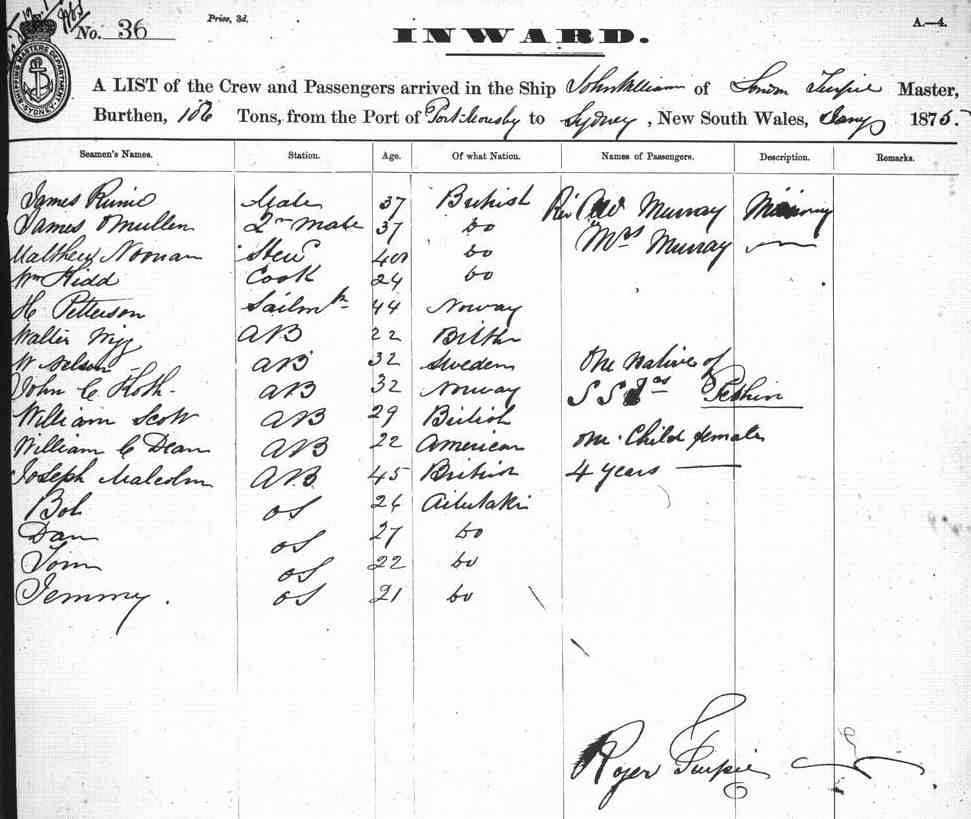 No. 36
Price, 3d.
INWARD.
A.—4.
SHIPPING MASTERS DEPARTMENT SYDNEY
A LIST of the Crew and Passengers arrived in the Ship John Williams of London Turpie Master,
Burthen, 186 Tons, from the Port of Port Moresby to Sydney, New South Wales, Jany 1875.
Seamen's Names. Station. Age. Of what Nation. Names of Passengers. Description. Remarks.
James Mate 37 British Revd Murray
James OMullen 2nd Mate 37 Do Mrs Murray
Matthew Noonan Stew 40 Do
Wm Kidd Cook 24 Do
H Petterson Sailmkr 44 Noway
Walter AB 22 Britsh
W Nelson AB 32 Sweden One Native of
John C AB 32 Noway S S
William Scott AB 29 British
William C Dean AB 22 American One Child female
Joseph Malcolm AB 45 British 4 years
Bob OS 26 Aitutaki
Dan OS 27 Do
Tom OS 22 Do
Jemmy. OS 21 Do
Roger Turpie